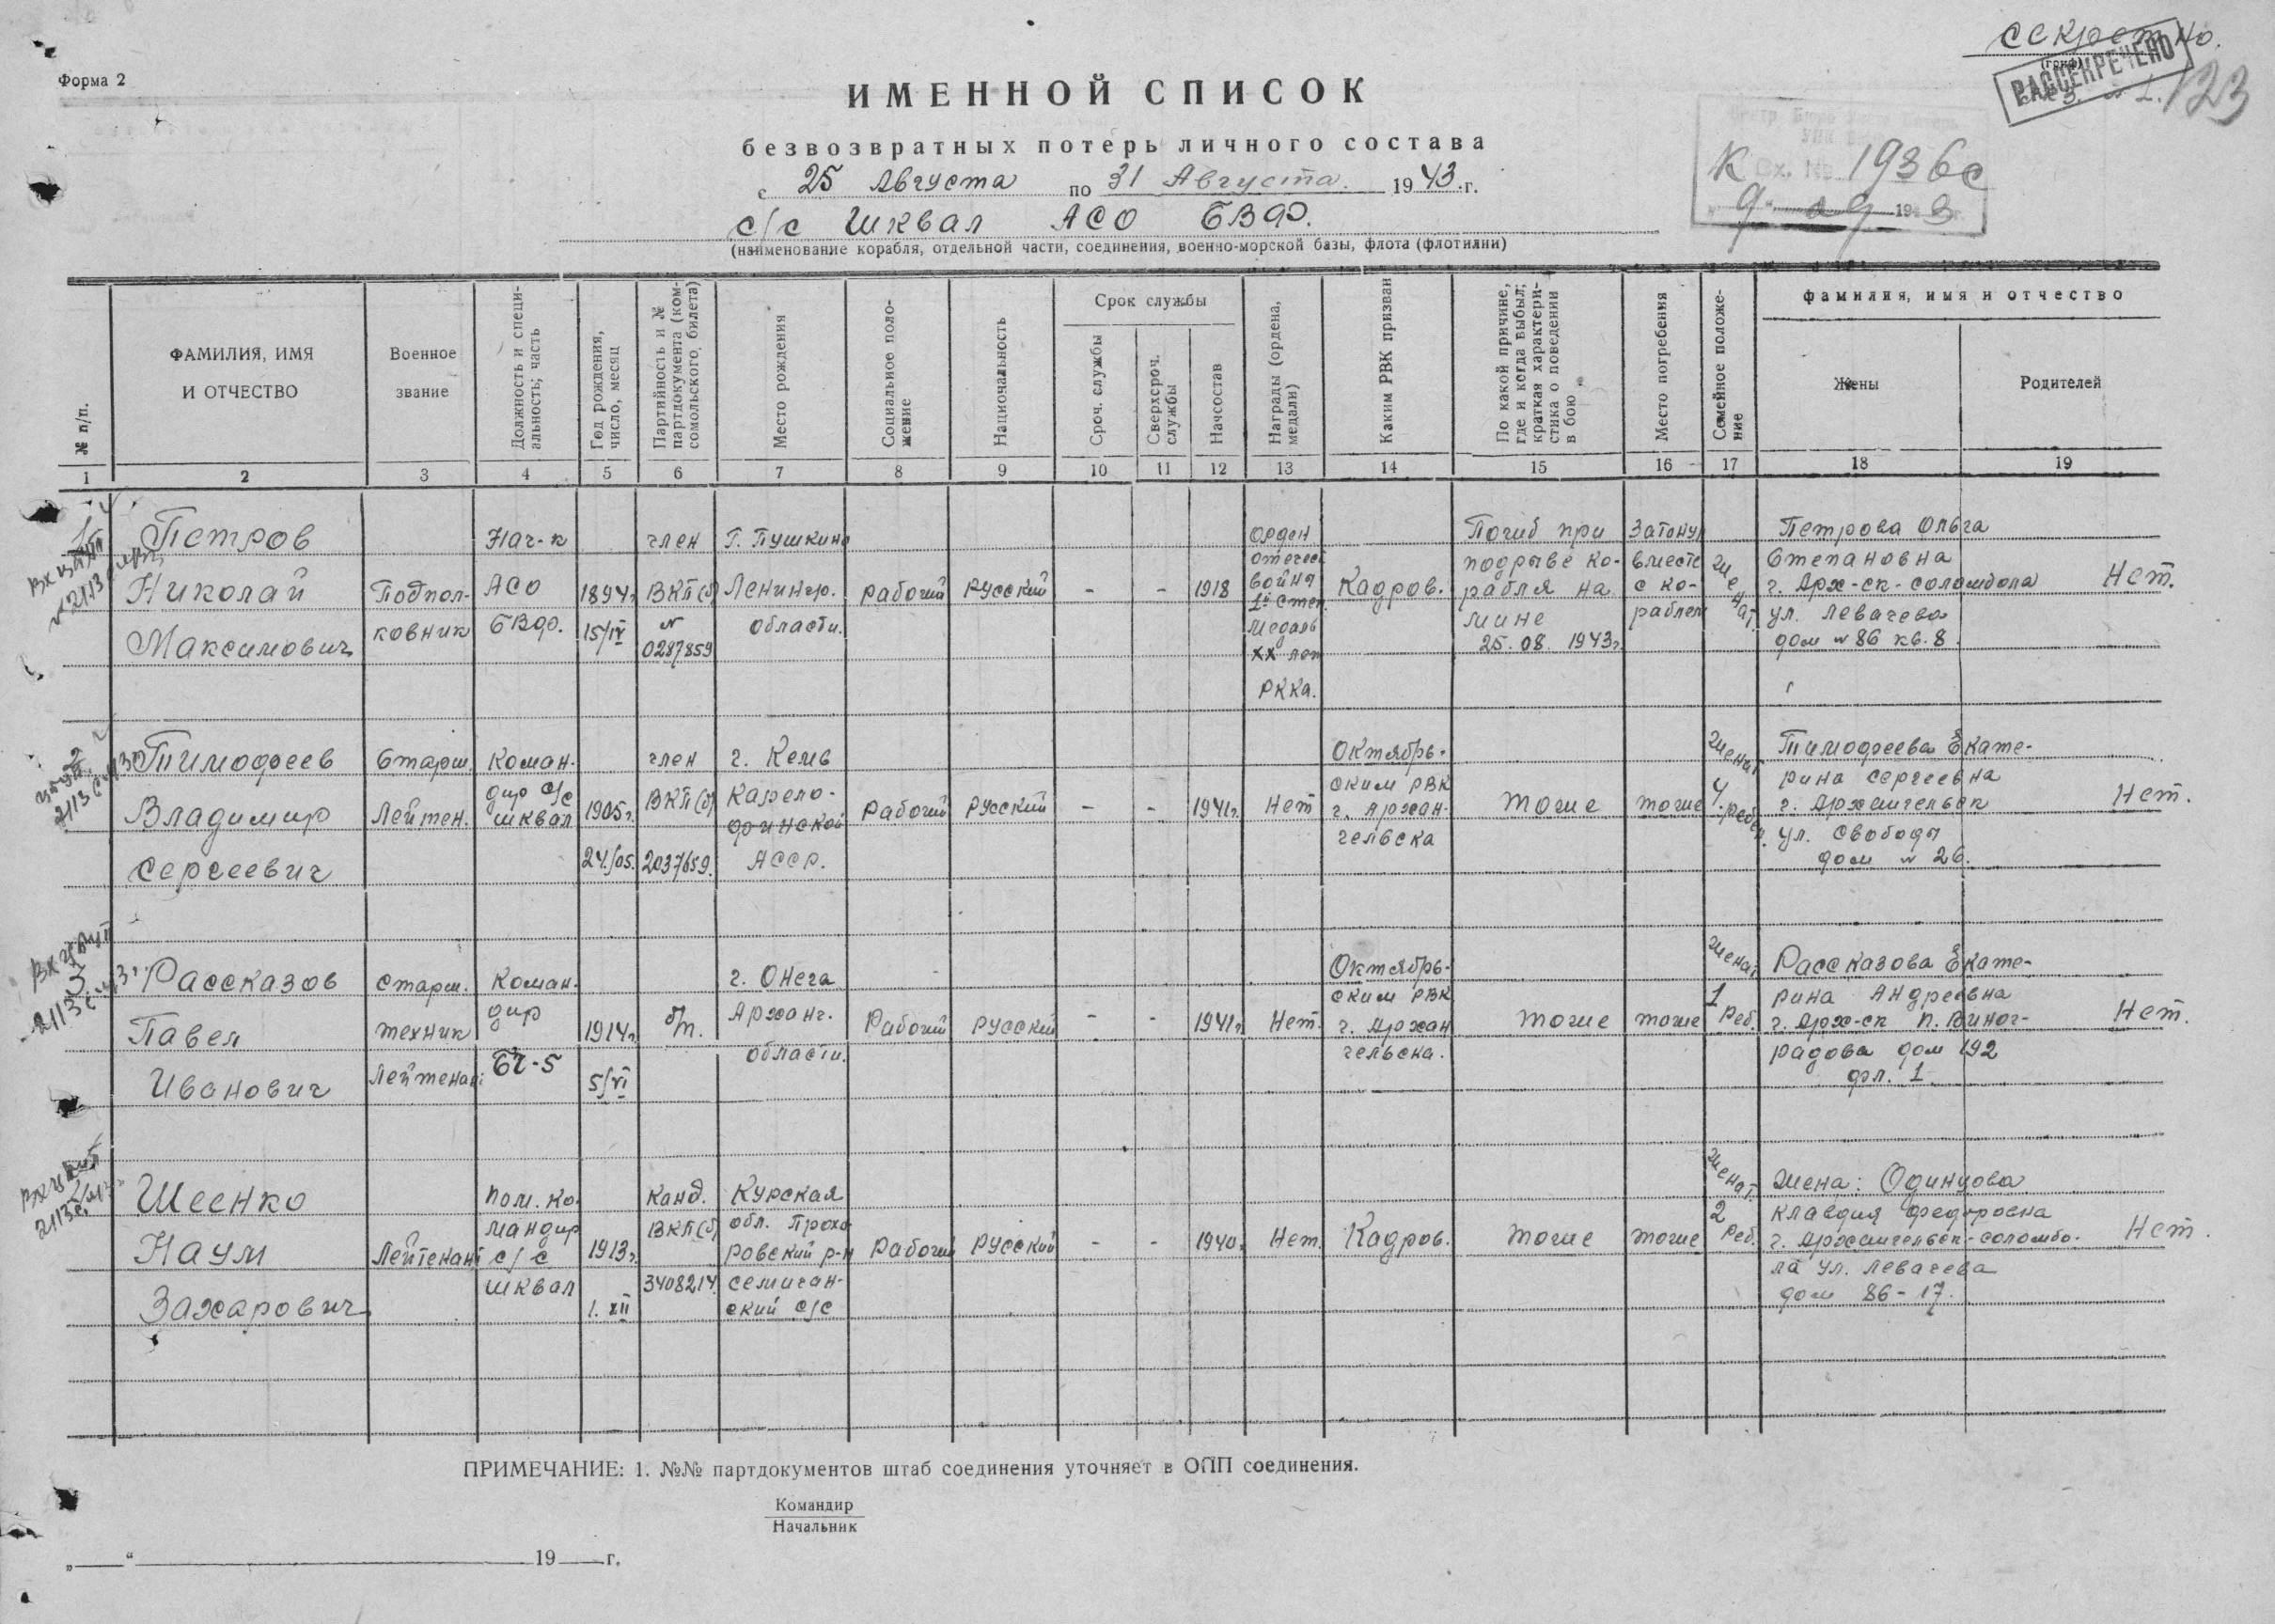 Секретно.
(гриф)
РАССЕКРЕЧЕНО
123
Форма 2
ИМЕННОЙ СПИСОК
безвозвратных потерь личного состава
с 25 Августа по 31 Августа 1943 г.
с/с Шквал АСО БВФ.
(наименование корабля, отдельной части, соединения, военно-морской базы, флота (флотилии)
К Вх. № 1936с
№ п/п.
ФАМИЛИЯ, ИМЯ
И ОТЧЕСТВО
Военное
звание
Должность и специ-
альность; часть
Год рождения,
число, месяц
Партийность и №
партдокумента (ком-
сомольского, билета)
Место рождения
Социальное поло-
жение
Национальность
Срок службы
Сроч. службы
Сверхсроч.
службы
Начсостав
Награды (ордена,
медали)
Каким РВК призван
По какой причине,
где и когда выбыл;
краткая характери-
стика о поведении
в бою
Место погребения
Семейное положе-
ние
фамилия, имя и отчество
Жены
Родителей
1 2 3 4 5 6 7 8 9 10 11 12 13 14 15 16 17 18 19
1
Петров
Николай
Максимович
Подпол-
ковник
Нач-к
АСО
БВФ.
1894г.
15/IV
член
ВКП(б)
№
0287859
г. Пушкино
Ленингр.
области.
рабочий
русский
-
-
1918
Орден
отечест
война
1й степ.
Медаль
XX лет
РККА.
Кадров.
Погиб при
подрыве ко-
рабля на
мине
25.08.1943г.
Затонул
вместе
с ко-
раблем
женат.
Петрова Ольга
Степановна
г. Арх-ск-соломбола
ул. Левачева
дом № 86 кв. 8.
Нет.
2
Тимофеев
Владимир
Сергеевич
Старш.
Лейтен.
Коман-
дир с/с
шквал
1905г.
24/05.
член
ВКП(б)
2037659.
г. Кемь
Карело-
финской
АССР.
Рабочий
Русский
-
-
1941г.
Нет
Октябрь-
ским РВК
г. Архан-
гельска
тоже
тоже
женат
4.
ребен.
Тимофеева Екате-
рина Сергеевна
г. Архангельск
ул. Свободы
дом № 26.
Нет.
3
Рассказов
Павел
Иванович
Старш.
техник
Лейтенант
Коман-
дир
БЧ-5
1914г.
5/VI
б/п.
г. Онега
Арханг.
области.
Рабочий
Русский
-
-
1941г.
Нет.
Октябрь-
ским РВК
г. Архан
гельска.
тоже
тоже
женат
1
Реб.
Рассказова Екате-
рина Андреевна
г. Арх-ск п. Виног-
радова дом 192
фл. 1.
Нет.
Шеенко
Наум
Захарович
Лейтенант
пом. ко-
мандир
с/с
шквал
1913г.
1. XII
Канд.
ВКП(б)
3408214.
Курская
обл. Прохо
ровский р-н
семиган-
ский с/с
Рабочий
Русский
-
-
1940.
Нет.
Кадров.
тоже
тоже
женат.
2
Реб.
Жена: Одинцова
Клавдия Федоровна
г. Архангельск-соломбо-
ла ул. Левачева
дом 86-17.
Нет.
ПРИМЕЧАНИЕ: 1. №№ партдокументов штаб соединения уточняет в ОПП соединения.
Командир
Начальник
„___“ ___ 19___г.